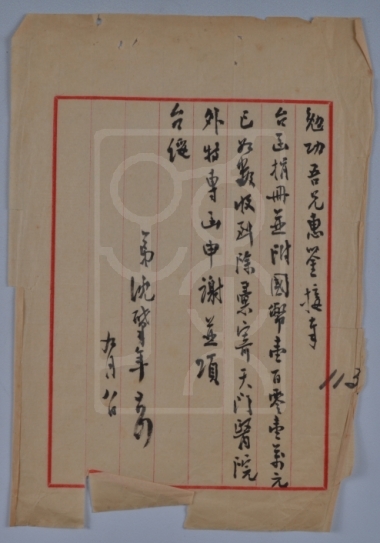 勉功吾兄惠鉴接奉
台函捐冊並附國幣壹百零壹萬元
已如數收到除彙寄天门醫院
外特專函申謝並頌
台綏
弟沈肇年
九月
113